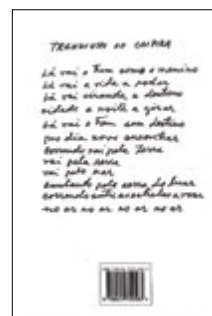 TRENZINHO DO CAIPIRA
Lá vai o trem com o menino
Lá vai a vida a rodar
Lá vai ciranda e destino
cidade e noite a girar
Lá vai o trem sem destino
pro dia novo encontrar
Correndo vai pela terra
vai pela serra
vai pelo mar
Cantando pela serra do luar
correndo entre as estrelas a voar
no ar no ar no ar no ar